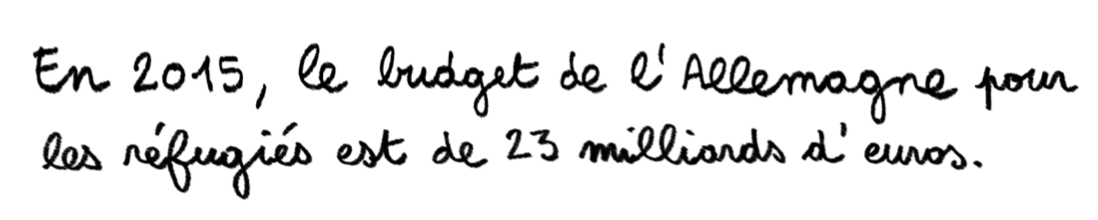 En 2015, le budget de l'Allemagne pour
les réfugiés est de 23 milliards d'euros.